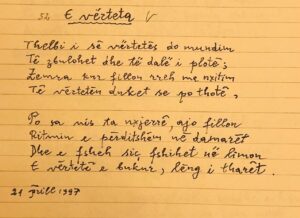 52. E vërteta V
Thelbi i së vërtetës do mundim
Të zbulohet dhe të dalë i plotë;
Zemra kur fillon rreh me nxitim
Të vërtetën duket se po thotë,
Po sa nis ta nxjerrë, ajo fillon
Ritmin e përditshëm në damarët
Dhe e fsheh siç fshihet në limon
E vërtetë e bukur, lëng i tharët.
21 prill 1997